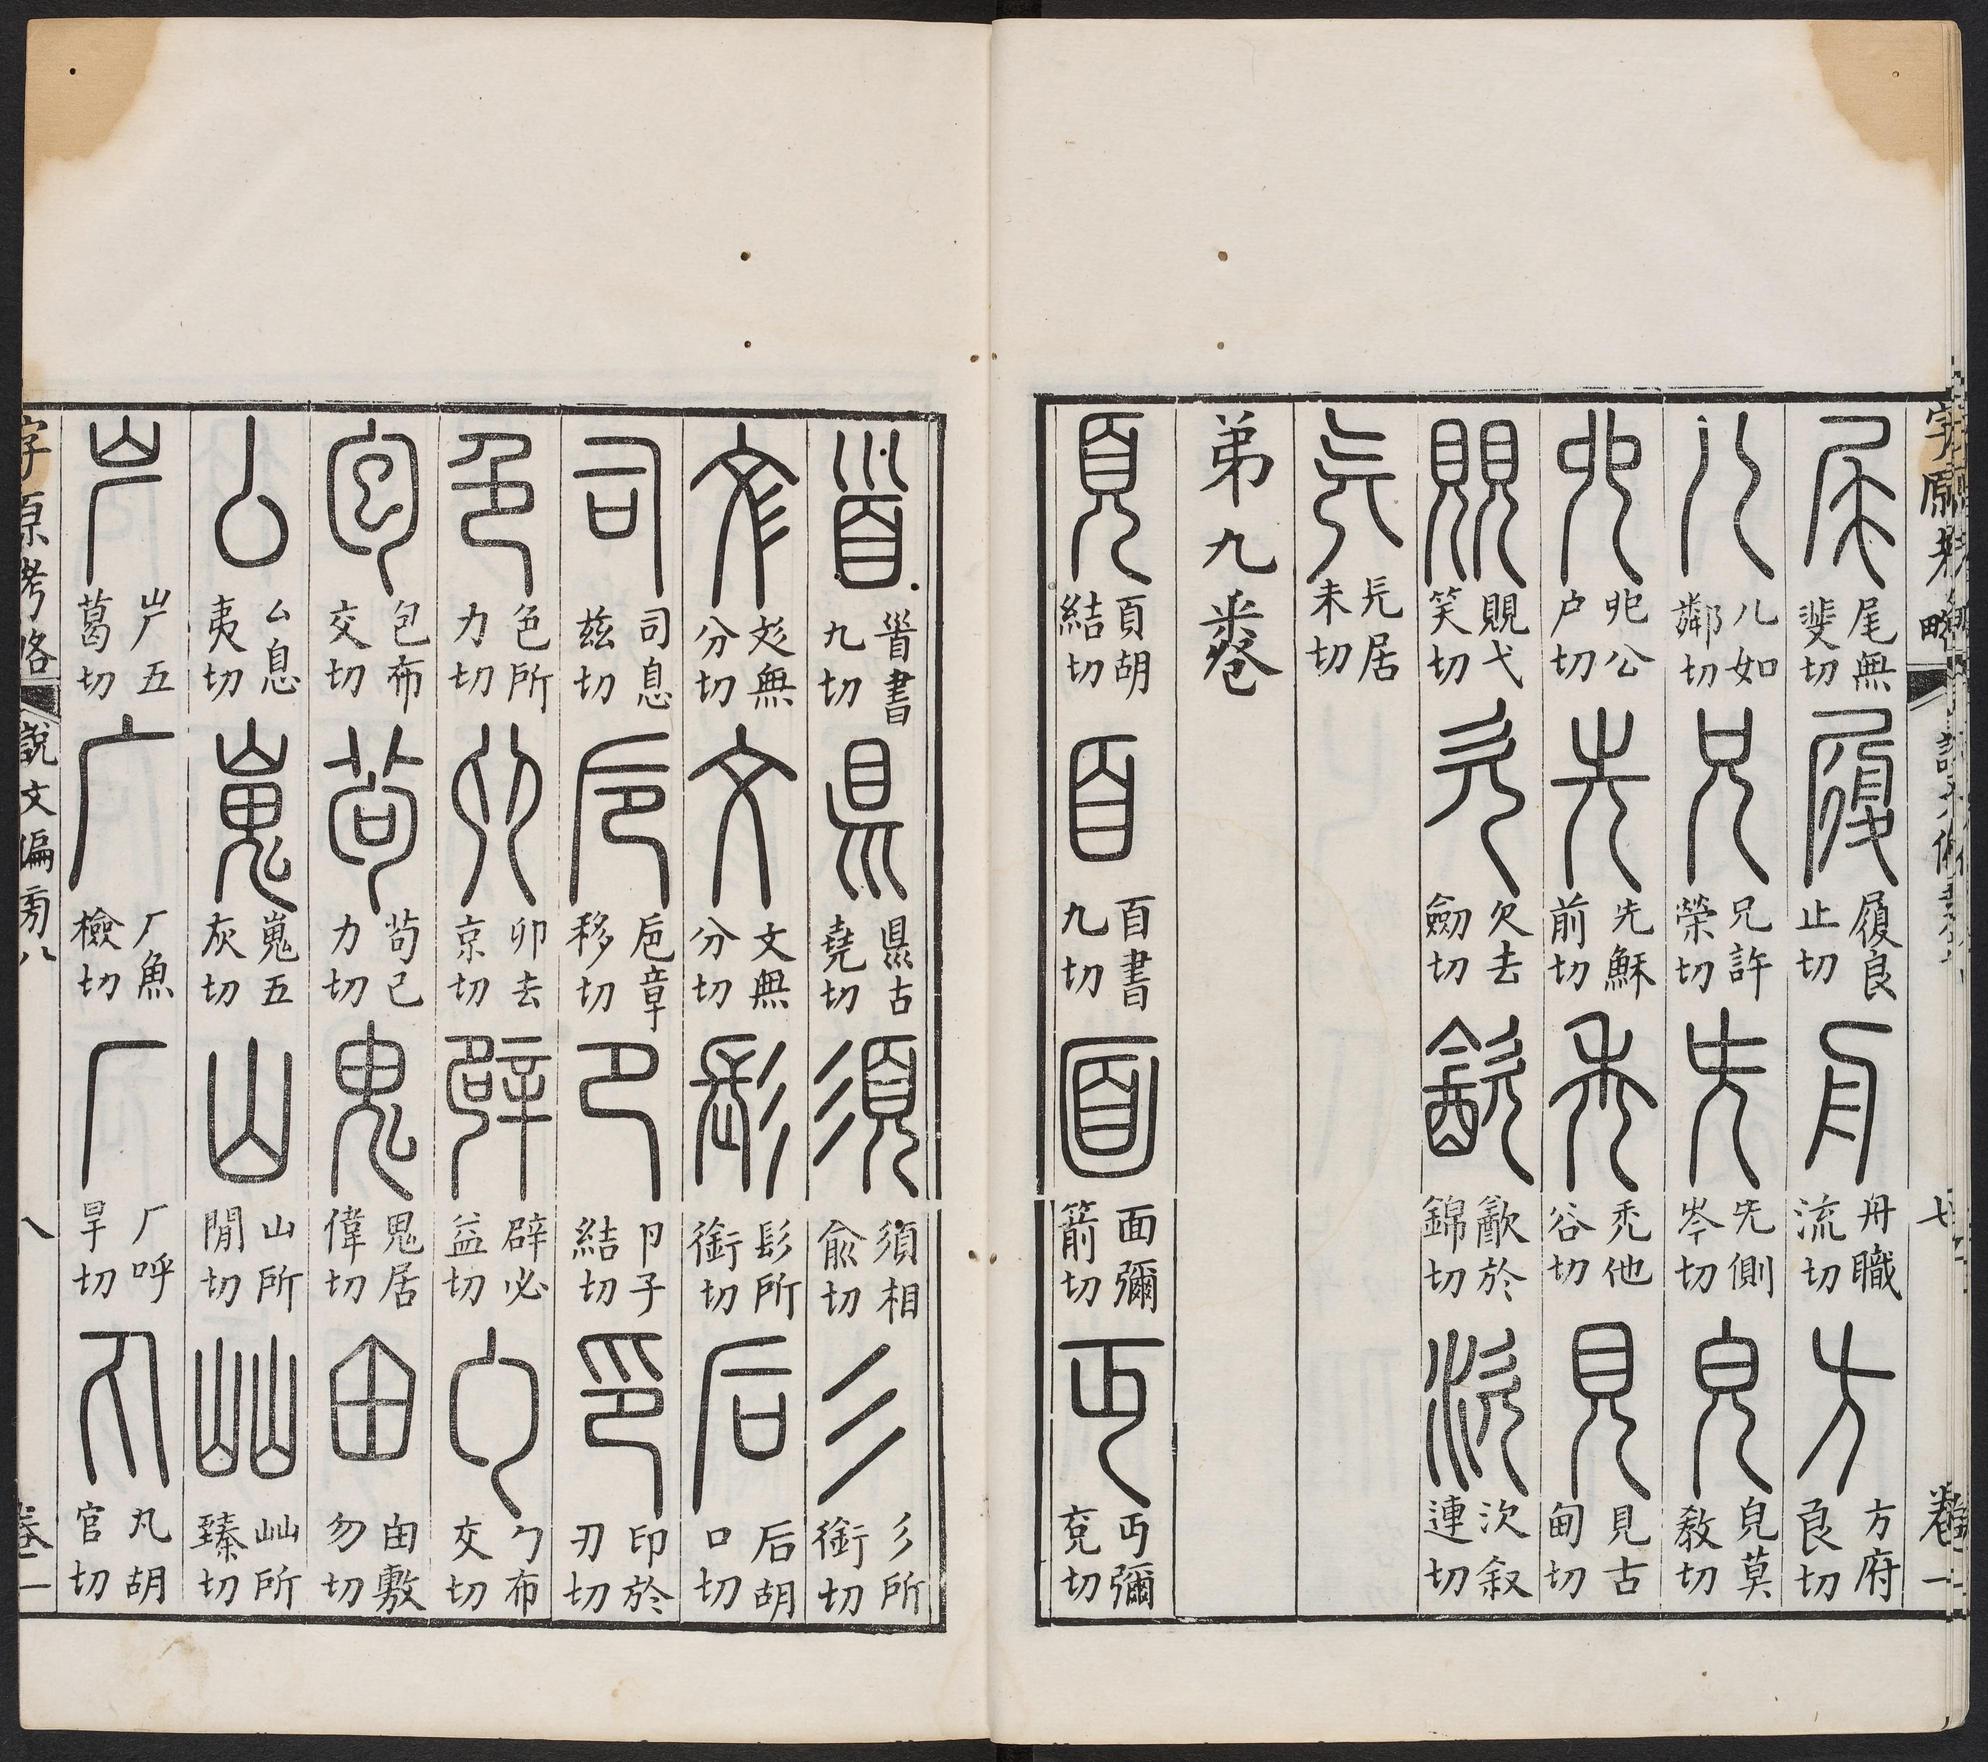 尾無斐切 履良止切 舟職流切 方府良切
儿如鄰切 兄許榮切 兂側岑切 皃莫敎切
𠑹公户切 先穌前切 秃他谷切 見古甸切
覞弋笑切 欠去劒切 㱃於錦切 㳄叙連切
㒫居未切
弟九卷
頁胡結切 𦣻書九切 面彌箭切 丏彌兗切
𩠐書九切 県古堯切 須相俞切 彡所銜切
彣無分切 文無分切 髟所銜切 后胡口切
司息兹切 卮章移切 卪子結切 印於刃切
色所力切 卯去京切 辟必益切 勹布交切
包布交切 茍己力切 鬼居偉切 甶敷勿切
厶息夷切 嵬五灰切 山所閒切 屾所臻切
屵五葛切 广魚檢切 厂呼旱切 丸胡官切
字原考略 說文偏旁八 八 卷一